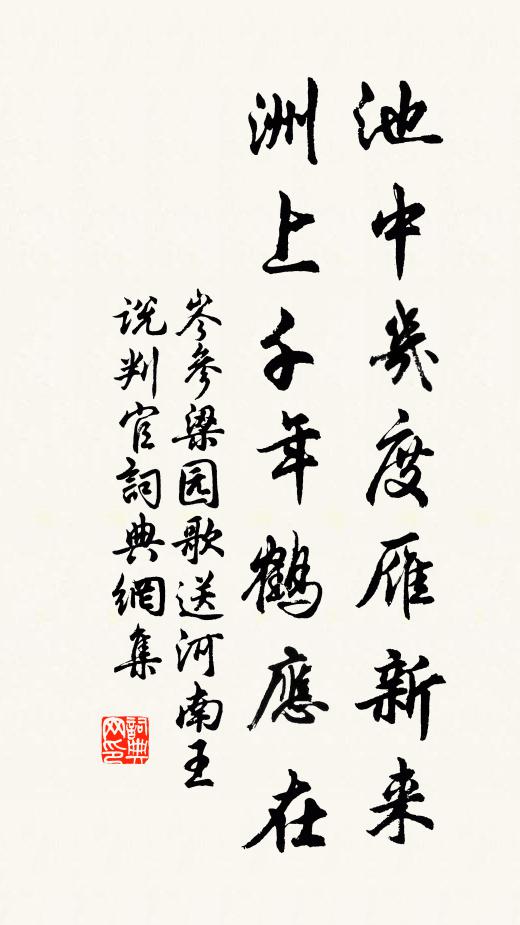 池中幾度雁新来
洲上千年鹤應在
岑參梁园歌送河南王
说判官詞典網集
詞典
网印